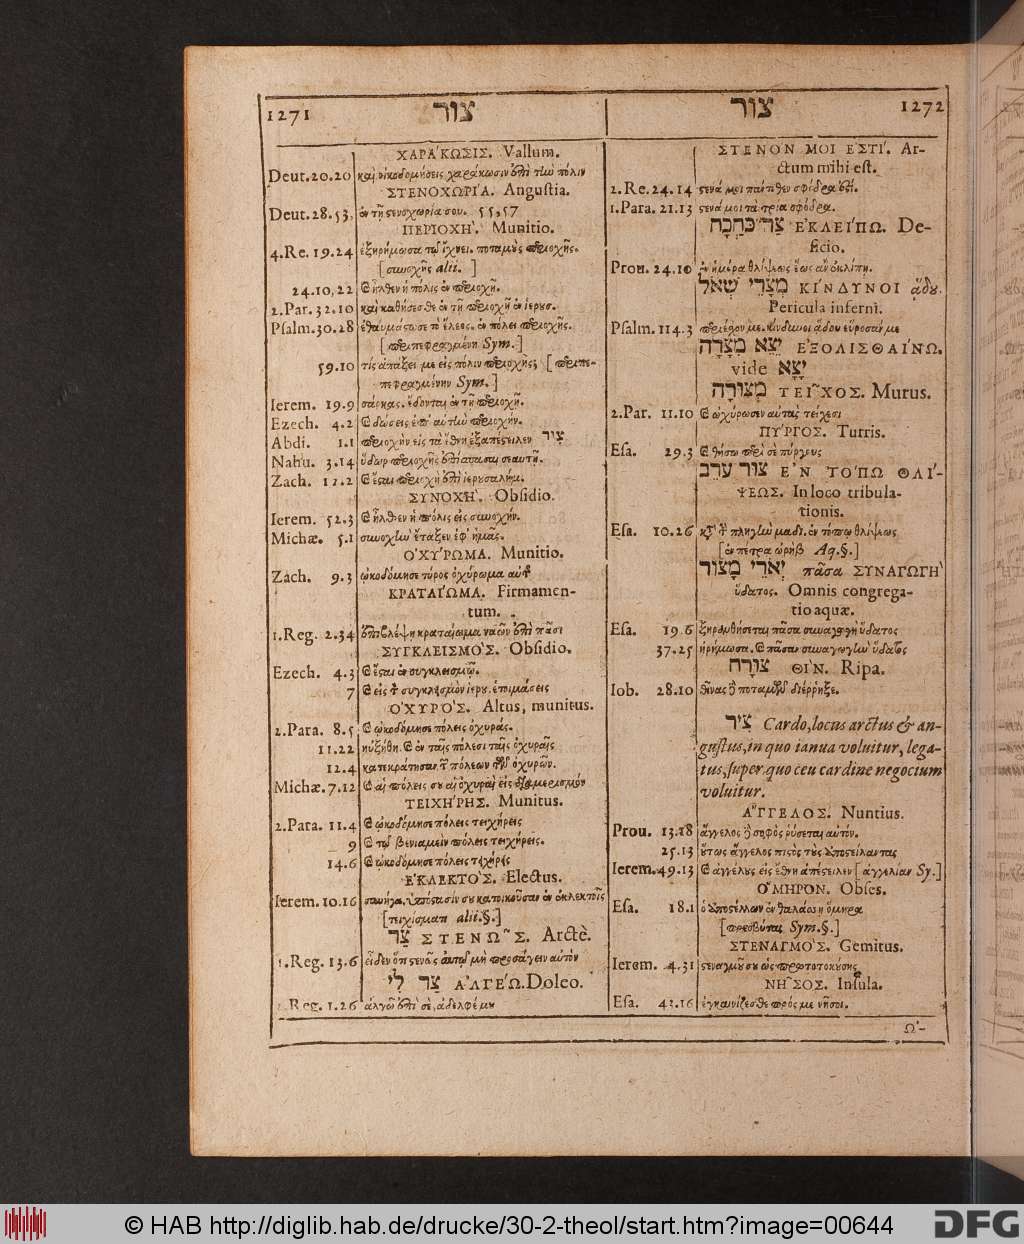 1271 צור
ΧΑΡΑΚΩΣΙΣ. Vallum.
Deut. 20.20 καὶ οἰκοδομήσεις χαράκωσιν ἐπὶ τὴν πόλιν
ΣΤΕΝΟΧΩΡΙΑ. Angustia.
Deut. 28.53, ἐν τῇ στενοχωρία σου. 55,57
ΠΕΡΙΟΧΗ. Munitio.
4.Re. 19.24 ἐξηρήμωσα τῷ ἴχνει. ποταμοὺς περιοχῆς.
[συνοχῆς alii. ]
24.10,22 Ϗ ἦλθεν ἡ πόλις ἐν περιοχῇ.
2.Par. 32.10 καὶ καθήσεσθε ἐν τῇ περιοχῇ ἐν ἱερουσ.
Psalm. 30.28 ἐθαυμάστωσε τὸ ἔλεος. ἐν πόλει περιοχῆς.
[περιπεφραγμένη Sym.]
59.10 τίς ἀπάξει με εἰς πόλιν περιοχῆς; [περιπε-
πεφραγμένην Sym.]
Ierem. 19.9 σάρκας. ἔδονται ἐν τῇ περιοχῇ.
Ezech. 4.2 Ϗ δώσεις ἐπ' αὐτὴν περιοχήν.
Abdi. 1.1 περιοχὴν εἰς τὰ ἔθνη ἐξαπέστειλεν ציר
Nahu. 3.14 ὕδωρ περιοχῆς ἐπίσπασαι σεαυτῇ.
Zach. 12.2 Ϗ ἔσται περιοχὴ ἐπὶ ἱερυσαλήμ.
ΣΥΝΟΧΗ. Obsidio.
Ierem. 52.3 Ϗ ἦλθεν ἡ πόλις εἰς συνοχήν.
Michæ. 5.1 συνοχὴν ἔταξεν ἐφ' ἡμᾶς.
ΟΧΥΡΩΜΑ. Munitio.
Zach. 9.3 ᾠκοδόμησε τύρος ὀχύρωμα αὐτῇ
ΚΡΑΤΑΙΩΜΑ. Firmamen-
tum.
1.Reg. 2.34 ἐπιβλέψη κραταίωμα ναῶν ἐπὶ πᾶσι
ΣΥΓΚΛΕΙΣΜΟΣ. Obsidio.
Ezech. 4.3 Ϗ ἔσται ἐν συγκλεισμῷ.
7 Ϗ εἰς τὸν συγκλεισμὸν ἱερυ. ἑτοιμάσεις
ΟΧΥΡΟΣ. Altus, munitus.
2.Para. 8.5 Ϗ ᾠκοδόμησε πόλεις ὀχυράς.
11.22 ηὐξήθη. Ϗ ἐν ταῖς πόλεσι ταῖς ὀχυραῖς
12.4 κατεκράτησαν τῶν πόλεων τῶν ὀχυρῶν.
Michæ. 7.12 Ϗ αἱ πόλεις σου αἱ ὀχυραὶ εἰς διαμερισμόν
ΤΕΙΧΗΡΗΣ. Munitus.
2.Para. 11.4 Ϗ ᾠκοδόμησε πόλεις τειχήρεις
9 Ϗ τῷ βενιαμεὶν πόλεις τειχήρεις.
14.6 Ϗ ᾠκοδόμησε πόλεις τειχήρεις
ΕΚΛΕΚΤΟΣ. Electus.
Ierem. 10.16 συνήγαγεν ὑπόστασίν σου κατοικοῦσαν ἐν ἐκλεκτοῖς
[τειχίσματι alii.§.]
צר ΣΤΕΝΩΣ. Arctè.
1.Reg. 13.6 εἶδεν ὅτι στενῶς αὐτῷ μὴ προσάγειν αὐτὸν
צר לי ΑΛΓΕΩ. Doleo.
2.Reg. 1.26 ἀλγῶ ἐπὶ σὲ, ἀδελφέ μου
צור 1272
ΣΤΕΝΟΝ ΜΟΙ ΕΣΤΙ. Ar-
ctum mihi est.
2.Re. 24.14 στενά μοι πάντοθεν σφόδρα ἐστί.
1.Para. 21.13 στενά μοι τὰ τρία σφόδρα.
צר כחכה ΕΚΛΕΙΠΩ. De-
ficio.
Prou. 24.10 ἐν ἡμέρα θλίψεως ἕως ἂν ἐκλίπῃ.
מצרי שאל ΚΙΝΔΥΝΟΙ ᾅδου.
Pericula inferni.
Psalm. 114.3 περιέσχον με. κίνδυνοι ᾅδου εὕροσάν με
יצא מצרה ΕΞΟΛΙΣΘΑΙΝΩ.
vide יצא
מצורה ΤΕΙΧΟΣ. Murus.
2.Par. 11.10 Ϗ ὠχύρωσεν αὐτὰς τείχεσι
ΠΥΡΓΟΣ. Turris.
Esa. 29.3 Ϗ θήσω περὶ σὲ πύργους
צור ערב ΕΝ ΤΟΠΩ ΘΛΙ-
ΨΕΩΣ. In loco tribula-
tionis.
Esa. 10.26 κατὰ τὴν πληγὴν μαδι. ἐν τόπῳ θλίψεως
[ἐν πέτρα ὠρὴβ Aq.§.]
יארי מצור πᾶσα ΣΥΝΑΓΩΓΗ
ὕδατος. Omnis congrega-
tio aquæ.
Esa. 19.6 ξηρανθήσεται πᾶσα συναγωγὴ ὕδατος
37.25 ἠρήμωσα. Ϗ πᾶσαν συναγωγὴν ὕδατος
צורה ΘΙΝ. Ripa.
Iob. 28.10 θῖνας δὲ ποταμῶν διέρρηξε.
ציר Cardo, locus arctus & an-
gustus, in quo ianua voluitur, lega-
tus, super quo ceu cardine negocium
voluitur.
ΑΓΓΕΛΟΣ. Nuntius.
Prou. 13.18 ἄγγελος δὲ σοφὸς ῥύσεται αὐτόν.
25.13 οὕτως ἄγγελος πιστὸς τοὺς ἀποστείλαντας
Ierem. 49.13 Ϗ ἀγγέλους εἰς ἔθνη ἀπέστειλεν [ἀγγελίαν Sy.]
ΟΜΗΡΟΝ. Obses.
Esa. 18.1 ὁ ἀποστέλλων ἐν θαλάσσῃ ὅμηρα
[πρεσβύτας Sym.§.]
ΣΤΕΝΑΓΜΟΣ. Gemitus.
Ierem. 4.31 στεναγμοῦ σου ὡς πρωτοτοκούσης
ΝΗΣΟΣ. Insula.
Esa. 43.16 ἐγκαινίζεσθε πρός με νῆσοι.
Ω-
© HAB http://diglib.hab.de/drucke/30-2-theol/start.htm?image=00644
DFG